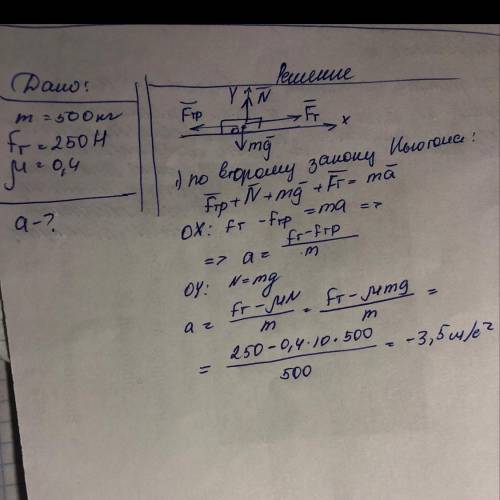 Дано:
m = 500кг
Fт = 250 Н
μ = 0,4
a - ?
Решение
Y N̅
F̅тр F̅т
0 X
mg̅
1) по второму закону Ньютона:
F̅тр + N̅ + mg̅ + F̅т = ma̅
OX: Fт - Fтр = ma =>
=> a = (Fт - Fтр)/m
OY: N = mg
a = (Fт - μN)/m = (Fт - μmg)/m =
= (250 - 0,4 · 10 · 500)/500 = -3,5 м/с²